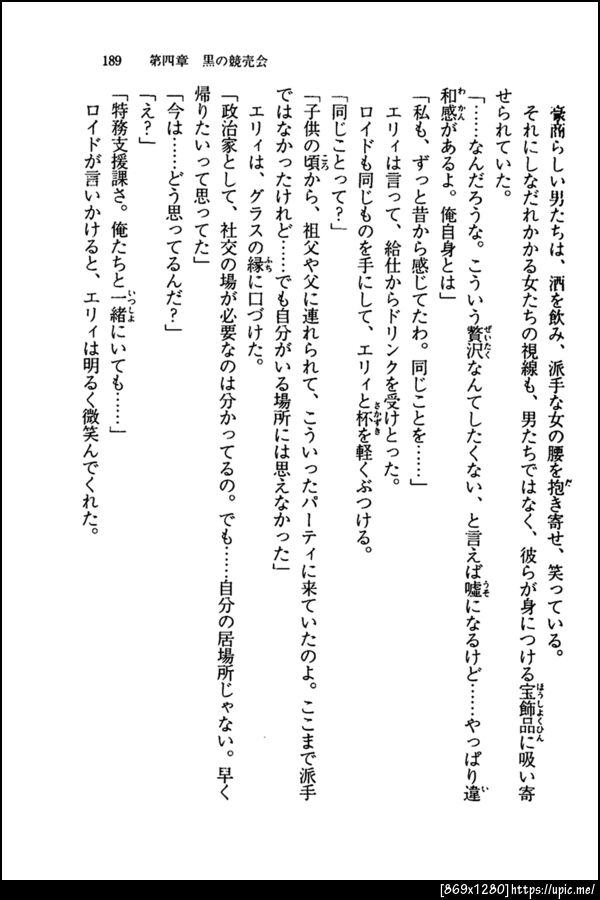 189　第四章　黒の競売会
豪商らしい男たちは、酒を飲み、派手な女の腰を抱き寄せ、笑っている。
それにしなだれかかる女たちの視線も、男たちではなく、彼らが身につける宝飾品に吸い寄
せられていた。
「……なんだろうな。こういう贅沢なんてしたくない、と言えば嘘になるけど……やっぱり違
和感があるよ。俺自身とは」
「私も、ずっと昔から感じてたわ。同じことを……」
エリィは言って、給仕からドリンクを受けとった。
ロイドも同じものを手にして、エリィと杯を軽くぶつける。
「同じことって？」
「子供の頃から、祖父や父に連れられて、こういったパーティに来ていたのよ。ここまで派手
ではなかったけれど……でも自分がいる場所には思えなかった」
エリィは、グラスの縁に口づけた。
「政治家として、社交の場が必要なのは分かってるの。でも……自分の居場所じゃない。早く
帰りたいって思ってた」
「今は……どう思ってるんだ？」
「え？」
「特務支援課さ。俺たちと一緒にいても……」
ロイドが言いかけると、エリィは明るく微笑んでくれた。
[869x1280]https://upic.me/